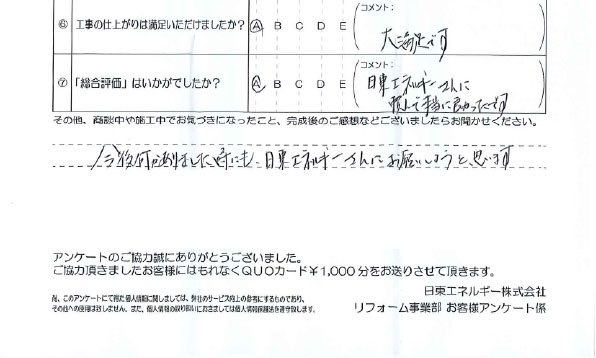 ⑥ 工事の仕上がりは満足いただけましたか? A B C D E コメント:
大満足です
⑦ 「総合評価」はいかがでしたか? A B C D E コメント:
日東エネルギーさんに
頼んで本当に良かったです
その他、商談中や施工中でお気づきになったこと、完成後のご感想などございましたらお聞かせください。
今後何かありました時にも、日東エネルギーさんにお願いしようと思います
アンケートのご協力誠にありがとうございました。
ご協力頂きましたお客様にはもれなくQUOカード¥1,000分をお送りさせて頂きます。
尚、このアンケートにて得た個人情報に関しましては、弊社のサービス向上の参考にするものであり、
その他への使用は致しません。また、個人情報の取り扱いにおきましては個人情報保護法を遵守致します。
日東エネルギー株式会社
リフォーム事業部 お客様アンケート係